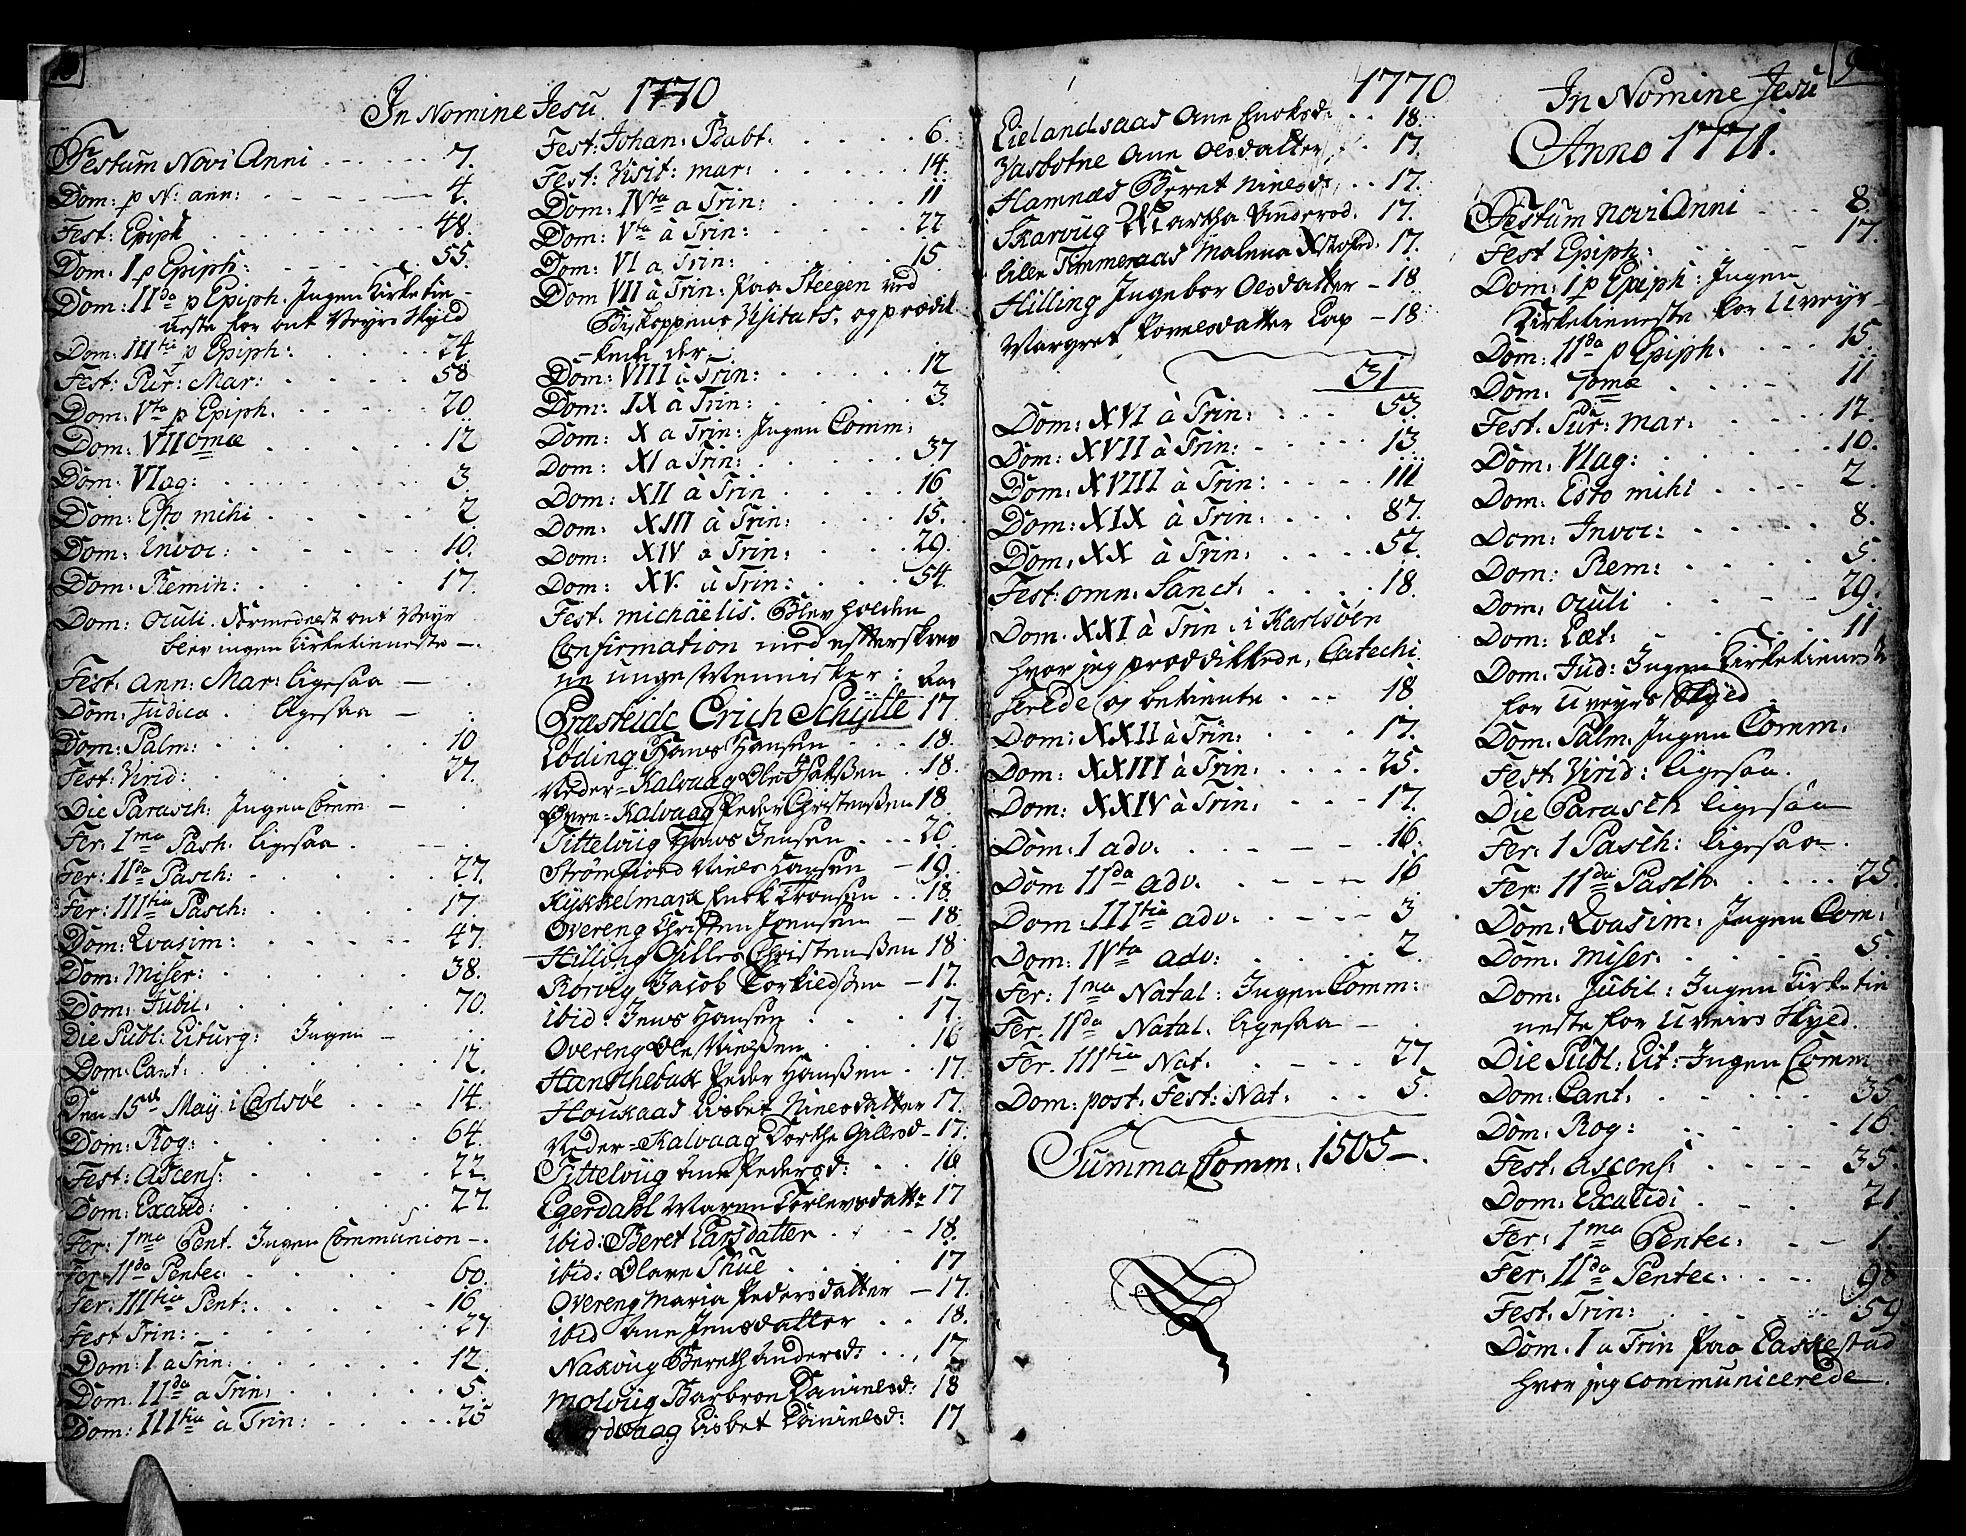 In Nomine Jesu 1770
Festum Novi Anni 7.
Dom: p N: ann: 4.
Fest: Epiph 48.
Dom: I p Epiph: 55.
Dom: IIda p Epiph. Ingen Kirketie-
neste for ont Veyrs skyld
Dom: IIItia p Epiph: 24.
Fest: Pur: Mar: 58
Dom: Vta p Epiph. 20.
Dom: VIIomæ 12
Dom: VIag: 3
Dom: Esto mihi 2
Dom: Invoc: 10.
Dom: Remin: 17.
Dom: Oculi. Formedelst ont Veyr
blev ingen Kirketienneste -.
Fest: Ann: Mar: ligesaa -
Dom: Judica. ligesaa -
Dom: Palm: 10
Fest: Virid: 27.
Die Parasch: Ingen Comm -
Fer: 1ma Pasch: ligesaa.
Fer: IIda Pasch: 27.
Fer: IIItia Pasch: 17.
Dom: Qvasim: 47.
Dom: Miser: 38.
Dom: Jubil: 70.
Die Publ: Liturg: Ingen -
Dom: Cant: 12.
Den 15de May i Carlsöe 14.
Dom: Rog: 64.
Fest: Ascens: 22.
Dom: Exaud: 22.
Fer: 1ma Pent. Ingen Communion -.
Fer: IIda Pentec: 60.
Fer: IIItia Pent: 16.
Fest Trin: 27
Dom: I a Trin: 12.
Dom: IIda a Trin: 5.
Dom: IIItia à Trin: 25
Fest: Johan: Babt. 6.
Fest: Visit: mar: 14.
Dom: IVta a Trin: 11
Dom: Vta à Trin: 22
Dom: VI a Trin: 15.
Dom VII à Trin: paa Steegen ved
Biskoppens Visitats, og prædik
-kede der.
Dom: VIII à Trin: 12
Dom: IX a Trin: 3.
Dom: X a Trin: Ingen Comm:
Dom: XI a Trin: 37
Dom: XII à Trin 16
Dom: XIII à Trin: 15.
Dom: XIV a Trin: 29.
Dom: XV. à Trin: 54.
Fest. Michaëlis. Blev holden
Confirmation med efterskrev
ne unge Mennisker: Aar
Præsteide Erich Schytte 17.
Løding Hans Hansen 18.
Neder-Kalvaag Ole 18.
Øvre-Kalvaag Peder Christenßen 18
Tittelvüg Hans Jensen 20.
Strømfiord Niels Hansen 19.
Kykkelmark Enok Tronsen 18.
Overeng Christen Jonsen 18.
Hilling Gilles Christenßen 18
Rorvig Jacob Torkiedßen 17.
ibid: Jens Hansen 17.
Overeng Ole Nielßen 16
Peder Hanßen 17.
Houkaas Lisbet Nielsdatter 17.
Neder-Kalvaag Dorthe Gillesd. 17.
Tittelvüg Ane Pedersd: 16
Egerdahl Maren Torlevsdatter 17
ibid: Beret Larsdatter 18.
ibid: Olave Thue 17
Overeng Maria Pedersdatter 17.
ibid Ane Jensdatter 18.
Naxvüg Bereth Andersd: 17
Molvüg Barbroe Danielsd: 18
Lisbet Danielsd: 17
1770
Eielandsaas Ane Enoksd: 18.
Vasbotne Ane Olsdatter 17.
Hamnæs Beret Nielsd: 17.
Skarvüg Martha Andersd. 17.
Lille Tømmeraas Malena Xstophd: 17.
Hilling Ingebor Olsdatter 18
Margret Povelsdatter Lap 18.
31
Dom: XVI à Trin: 53.
Dom: XVII à Trin: 13.
Dom: XVIII à Trin: 111
Dom: XIX à Trin: 87.
Dom: XX à Trin: 52.
Fest: omn: Sanct. 18.
Dom: XXI à Trin: i Karlsöen
hvor jeg prædikkede, Catechi
serede og betiente 18
Dom: XXII à Trin: 17.
Dom: XXIII à Trin: 25.
Dom: XXIV à Trin: 17.
Dom: 1 adv. 16.
Dom IIda adv. 16
Dom IIItia adv. 3
Dom: IVta adv: 2.
Fer: 1ma Natal: Ingen Comm:
Fer. IIda Natal. ligesaa -
Fer. IIItia Nat. 27.
Dom: post: Fest: Nat. 5.
Summa Comm: 1505 -.
In Nomine Jesu
Anno 1771.
Festum Novi Anni 8.
Fest Epiph: 17.
Dom: I p Epiph: Ingen
Kirketieneste for Uveyr -
Dom: IIda p Epiph. 15.
Dom: 7omæ 11
Fest: Pur: mar: 12.
Dom: VIag: 10.
Dom: Esto mihi 2.
Dom: Invoc: 8.
Dom: Rem: 5.
Dom: Oculi 29.
Dom: Læt: 11
Dom: Jud: Ingen Kirketienest
for Uveyrs Skyld
Dom: Palm. Ingen Comm.
Fest: Virid: ligesaa.
Die Parasch ligesaa
Fer: 1 Pasch: ligesaa.
Fer: IIda Pasch. 25.
Dom: Qvasim: Ingen Com:
Dom: Miser. 5.
Dom: Jubil: Ingen Kirketie
neste for Uveirs Skyld.
Die Publ: Lit: Ingen Comm
Dom: Cant. 35
Dom: Rog: 16.
Fest. Ascens: 35.
Dom: Exaudi 21.
Fer: 1ma Pentec: 1.
Fer: IIda Pentec: 98
Fest. Trin: 59
Dom: I a Trin paa Laskestad
hvor jeg communicerede.